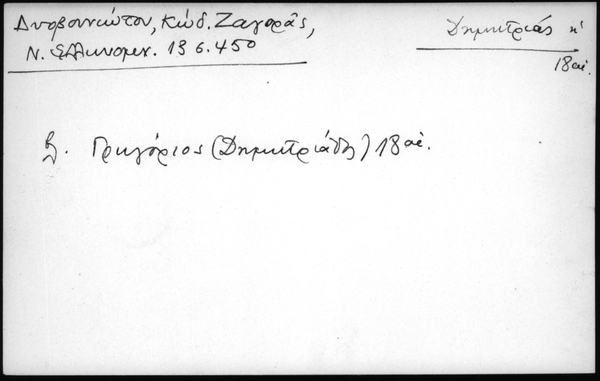 Δυοβουνιώτου, Κώδ. Ζαγορᾶς,
Ν. Ἑλληνομν. 13 σ. 450
Δημητριάς
18 αἰ.
βλ. Γρηγόριος (Δημητριάδος) 18 αἰ.